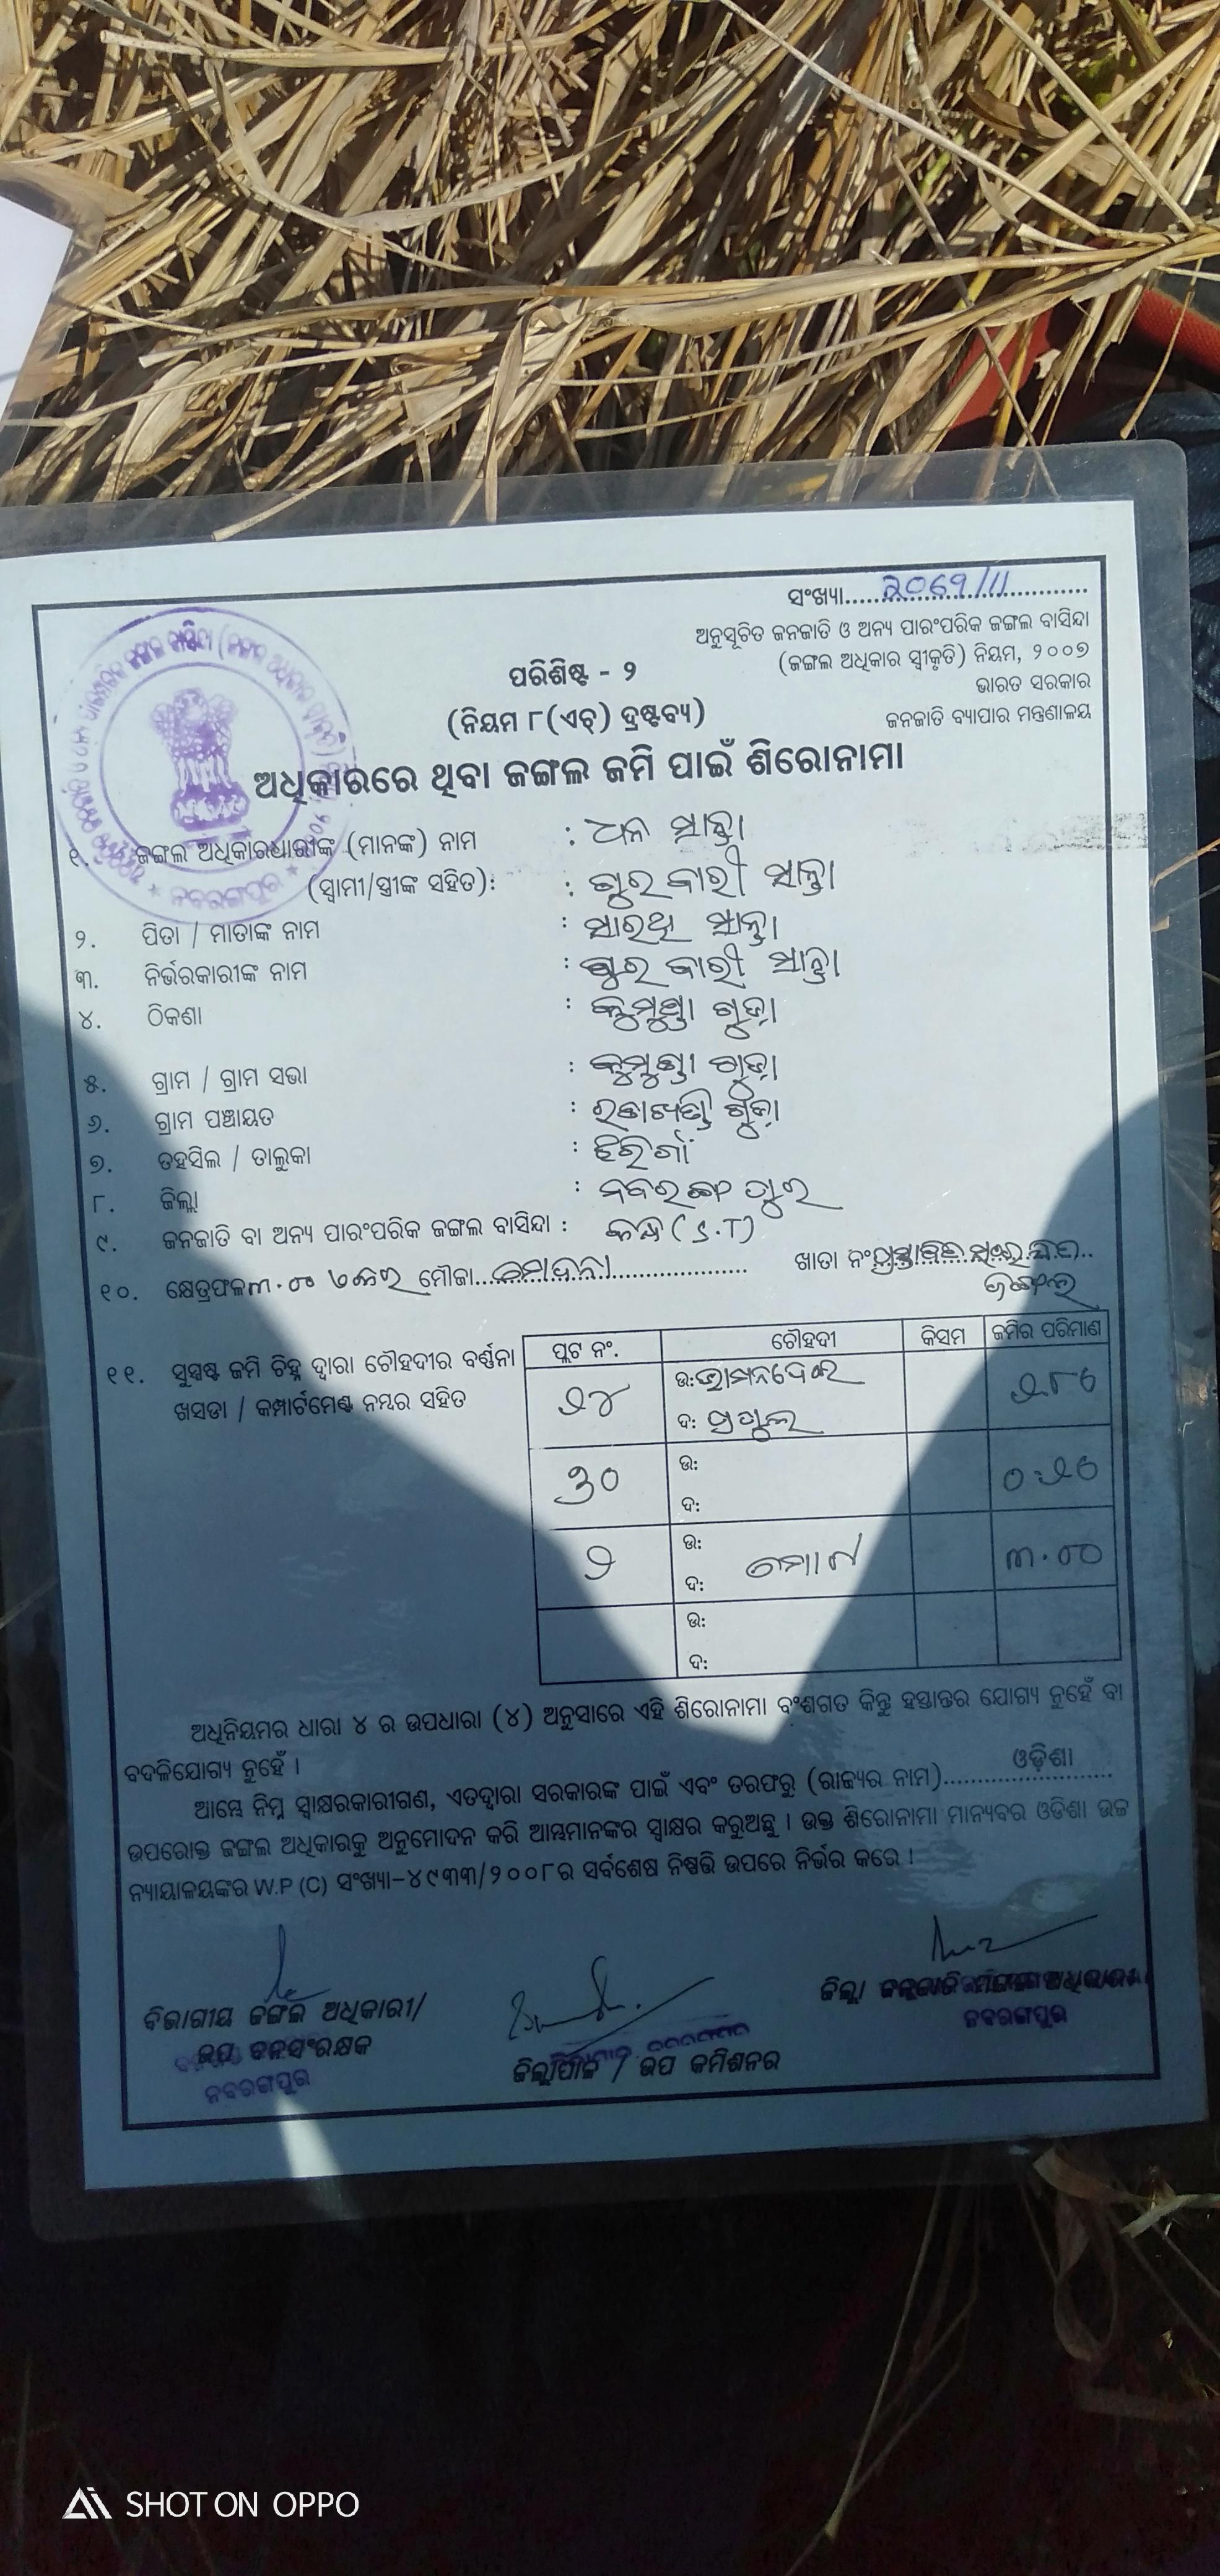 ସଂଖ୍ୟା..............................
ଅନୁସୂଚିତ ଜନଜାତି ଓ ଅନ୍ୟ ପାରଂପରିକ ଜଙ୍ଗଲ ବାସିନ୍ଦା
(ଜଙ୍ଗଲ ଅଧିକାର ସ୍ୱୀକୃତି) ନିୟମ, ୨୦୦୭
ଭାରତ ସରକାର
ଜନଜାତି ବ୍ୟାପାର ମନ୍ତ୍ରଣାଳୟ
ପରିଶିଷ୍ଟ - ୨
(ନିୟମ ୮(ଏଚ୍) ଦ୍ରଷ୍ଟବ୍ୟ)
ଅଧିକାରରେ ଥିବା ଜଙ୍ଗଲ ଜମି ପାଇଁ ଶିରୋନାମା
ନବରଙ୍ଗପୁର
୧. ଜଙ୍ଗଲ ଅଧିକାରଧାରୀଙ୍କ (ମାନଙ୍କ) ନାମ : ଧନ ସାନ୍ତା
(ସ୍ୱାମୀ/ସ୍ତ୍ରୀଙ୍କ ସହିତ): : ଗୁରବାରୀ ସାନ୍ତା
୨. ପିତା / ମାତାଙ୍କ ନାମ : ସାରଥି ସାନ୍ତା
୩. ନିର୍ଭରକାରୀଙ୍କ ନାମ : ଗୁରବାରୀ ସାନ୍ତା
୪. ଠିକଣା : ଗୁଡ଼ା
୫. ଗ୍ରାମ / ଗ୍ରାମ ସଭା : ଗୁଡ଼ା
୬. ଗ୍ରାମ ପଞ୍ଚାୟତ : ଗୁଡ଼ା
୭. ତହସିଲ / ତାଲୁକା :
୮. ଜିଲ୍ଲା : ନବରଙ୍ଗପୁର
୯. ଜନଜାତି ବା ଅନ୍ୟ ପାରଂପରିକ ଜଙ୍ଗଲ ବାସିନ୍ଦା : କନ୍ଧ (S.T)
୧୦. କ୍ଷେତ୍ରଫଳ ୩.୦୦ ଏକର ମୌଜା.............................. ଖାତା ନଂ ପ୍ରସ୍ତାବିତ
ଜଙ୍ଗଲ
୧୧. ସୁସ୍ପଷ୍ଟ ଜମି ଚିହ୍ନ ଦ୍ୱାରା ଚୌହଦୀର ବର୍ଣ୍ଣନା
ଖସଡା / କମ୍ପାର୍ଟମେଣ୍ଟ ନମ୍ବର ସହିତ
ପ୍ଲଟ ନଂ. ଚୌହଦୀ କିସମ ଜମିର ପରିମାଣ
୨୪ ଉ:
ଦ:
୩୦ ଉ:
ଦ:
୨ ଉ:
ଦ: ମୋଟ ୩.୦୦
ଉ:
ଦ:
ଅଧିନିୟମର ଧାରା ୪ ର ଉପଧାରା (୪) ଅନୁସାରେ ଏହି ଶିରୋନାମା ବଂଶଗତ କିନ୍ତୁ ହସ୍ତାନ୍ତର ଯୋଗ୍ୟ ନୁହେଁ ବା
ବଦଳିଯୋଗ୍ୟ ନୁହେଁ ।
ଆମ୍ଭେ ନିମ୍ନ ସ୍ୱାକ୍ଷରକାରୀଗଣ, ଏତଦ୍ୱାରା ସରକାରଙ୍କ ପାଇଁ ଏବଂ ତରଫରୁ (ରାଜ୍ୟର ନାମ)......ଓଡ଼ିଶା......
ଉପରୋକ୍ତ ଜଙ୍ଗଲ ଅଧିକାରକୁ ଅନୁମୋଦନ କରି ଆମ୍ଭମାନଙ୍କର ସ୍ୱାକ୍ଷର କରୁଅଛୁ । ଉକ୍ତ ଶିରୋନାମା ମାନ୍ୟବର ଓଡିଶା ଉଚ୍ଚ
ନ୍ୟାୟାଳୟଙ୍କର W.P (C) ସଂଖ୍ୟା-୪୯୩୩/୨୦୦୮ର ସର୍ବଶେଷ ନିଷ୍ପତ୍ତି ଉପରେ ନିର୍ଭର କରେ ।
ବିଭାଗୀୟ ଜଙ୍ଗଲ ଅଧିକାରୀ/
ଉପ ବନସଂରକ୍ଷକ
ନବରଙ୍ଗପୁର
ଜିଲ୍ଲାପାଳ / ଉପ କମିଶନର
ଜିଲ୍ଲା ଅଧିକାରୀ
ନବରଙ୍ଗପୁର
SHOT ON OPPO